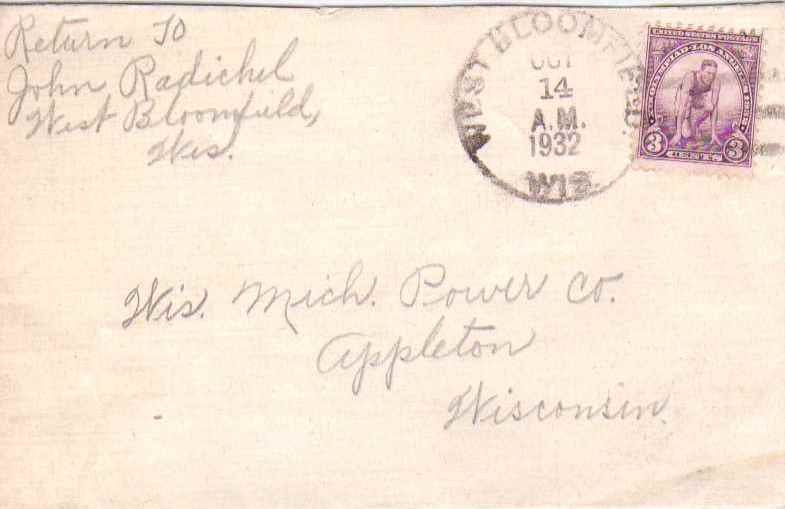 Return To
John Radichel
West Bloomfield,
Wis.
WEST BLOOMFIELD.
OCT
14
A.M.
1932
WIS.
UNITED STATES POSTAGE
XTH OLYMPIAD-LOS ANGELES 1932
3 CENTS 3
Wis. Mich. Power Co.
Appleton
Wisconsin.